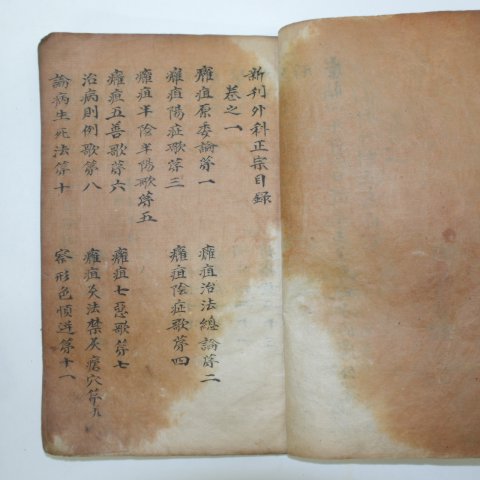 新刊外科正宗目録
卷之一
癰疽原委論苐一　癰疽治法總論苐二
癰疽陽症歌苐三　癰疽陰症歌苐四
癰疽半陰半陽歌苐五
癰疽五善歌苐六　癰疽七惡歌苐七
治病則例歌苐八　癰疽灸法禁灸瘡穴苐九
論病生死法苐十　察形色順逆苐十一